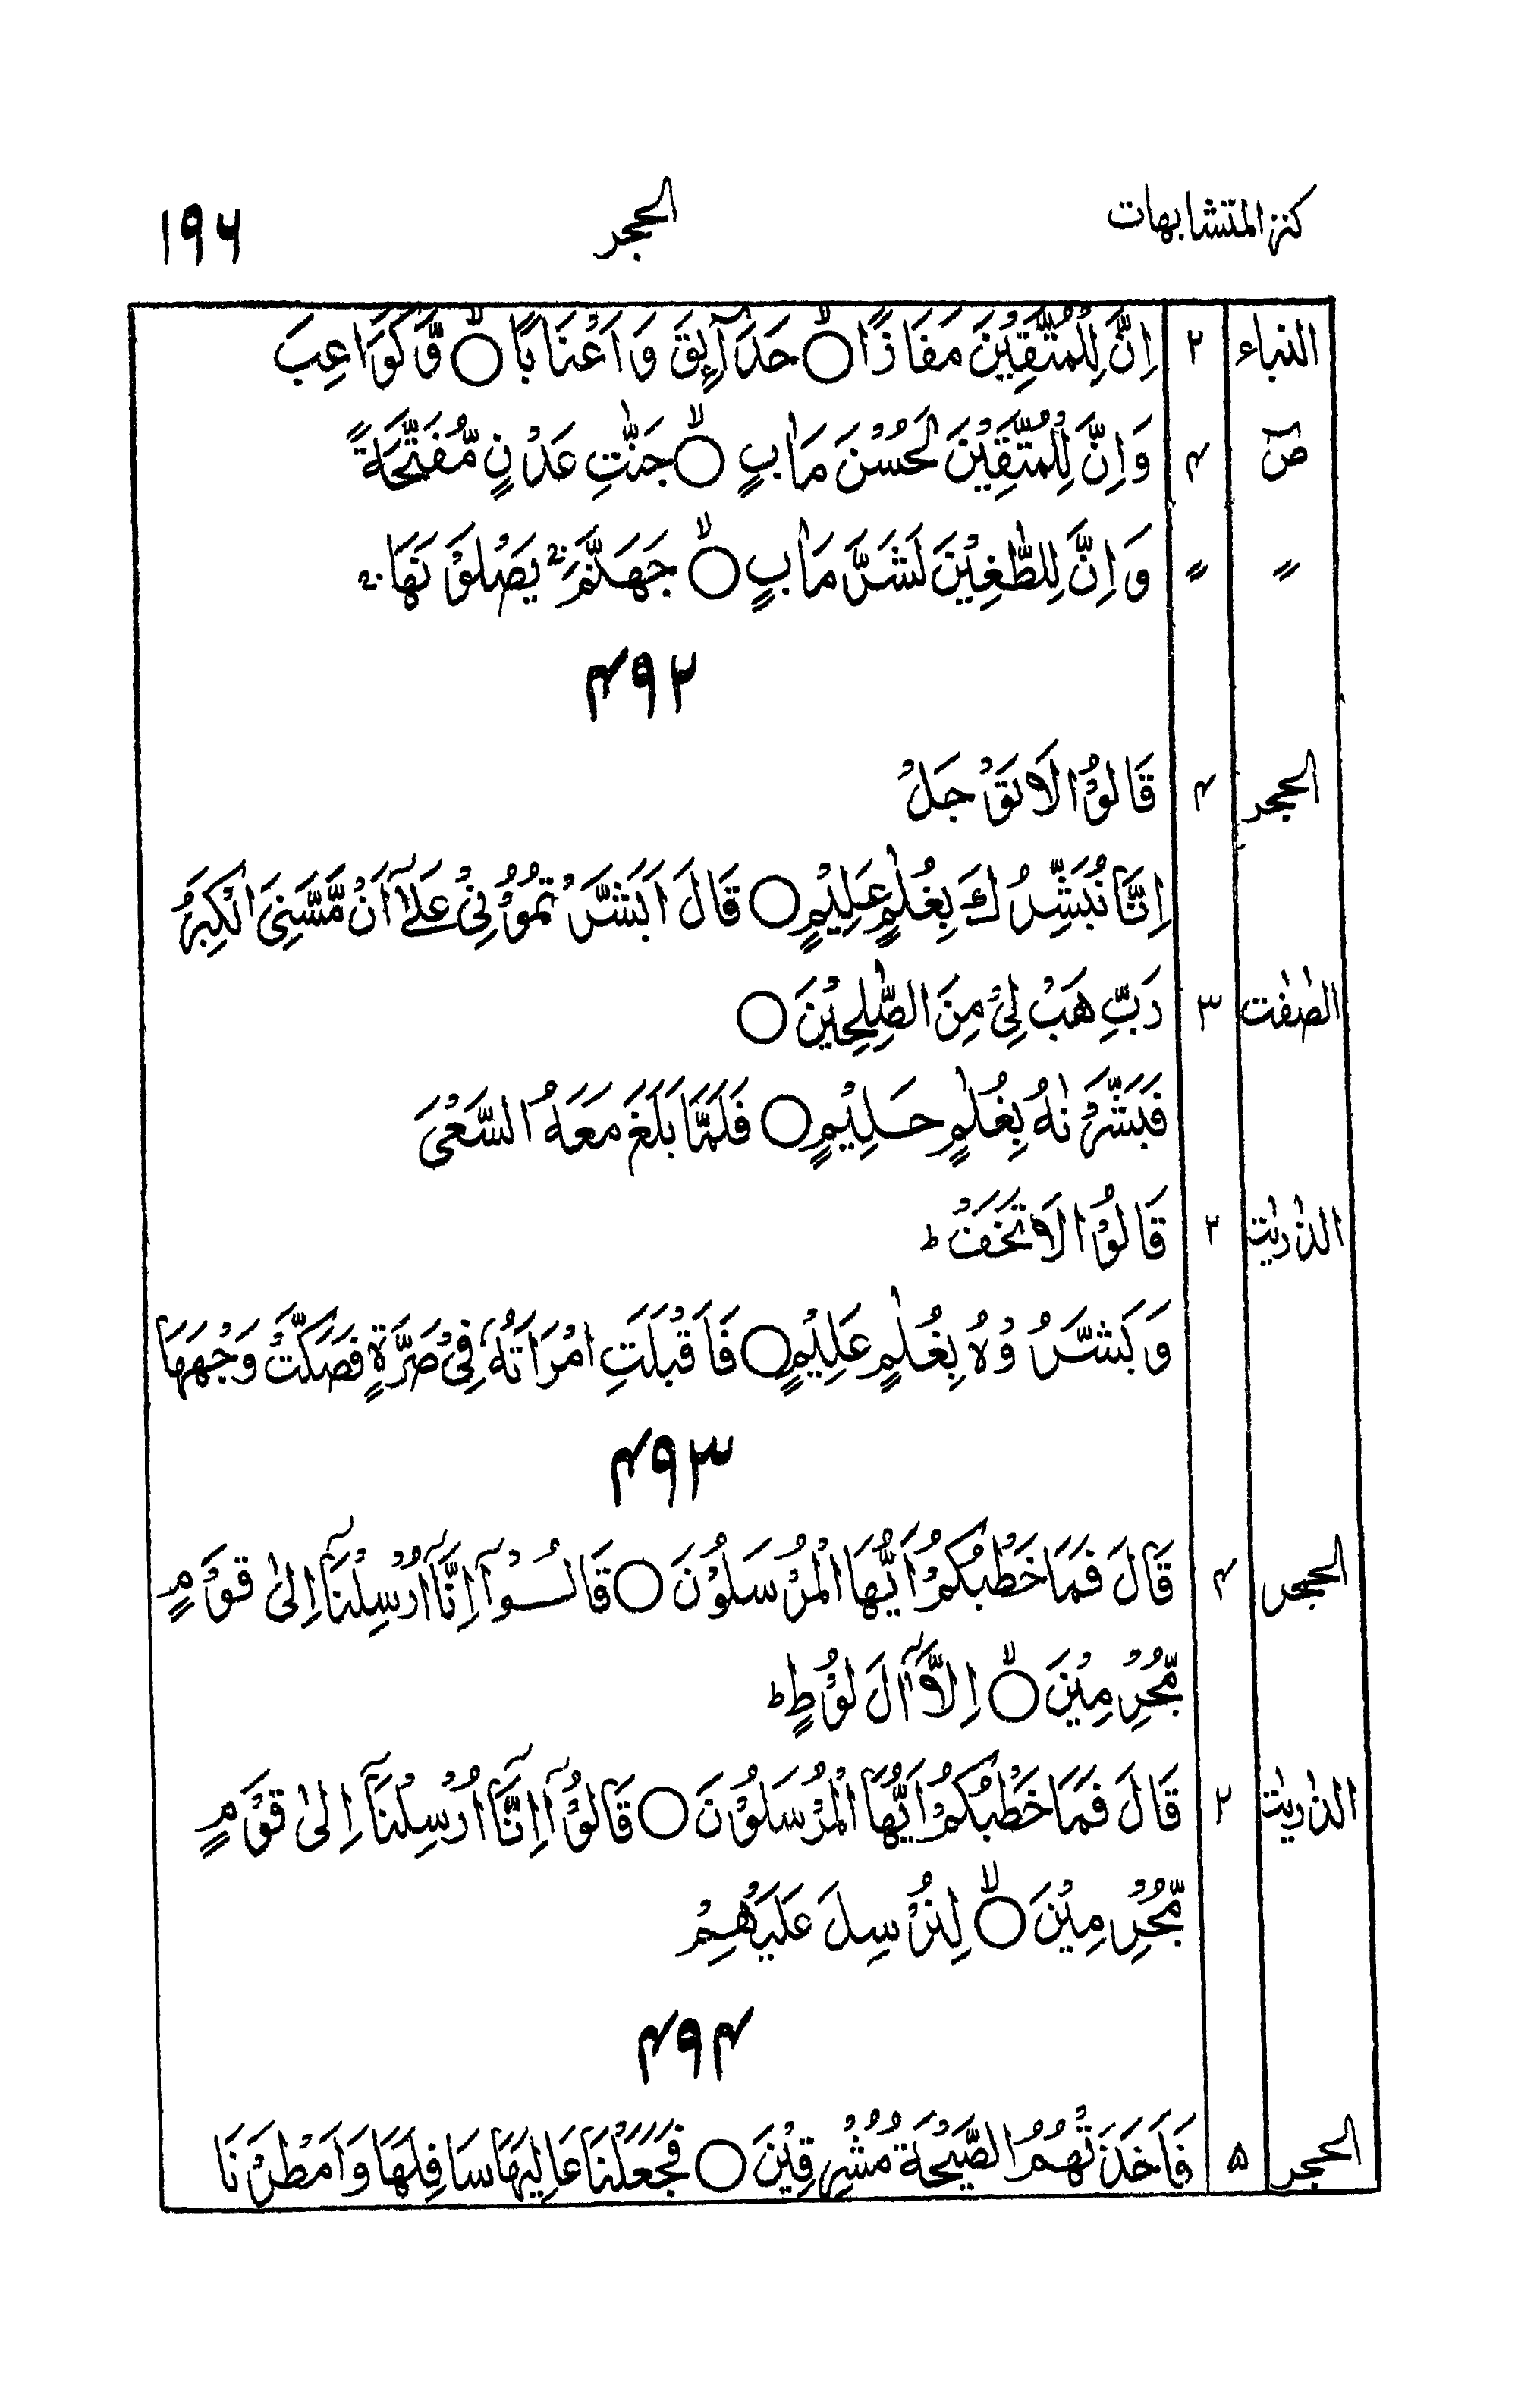 كنز المتشابهات الحجر ۱۹۶
النباء ۲ اِنَّ لِلْمُتَّقِيْنَ مَفَازًا ۙ○ حَدَآئِقَ وَ اَعْنَابًا ۙ○ وَّ كَوَاعِبَ
صٓ ۴ وَ اِنَّ لِلْمُتَّقِيْنَ لَحُسْنَ مَاٰبٍ ۙ○ جَنّٰتِ عَدْنٍ مُّفَتَّحَةً
〃 〃 وَ اِنَّ لِلطّٰغِيْنَ لَشَرَّ مَاٰبٍ ۙ○ جَهَنَّمَ ۚ يَصْلَوْنَهَا ۚ
۴۹۲
الحجر ۴ قَالُوْا لَا تَوْجَلْ
اِنَّا نُبَشِّرُكَ بِغُلٰمٍ عَلِيْمٍ ○ قَالَ اَبَشَّرْتُمُوْنِيْ عَلٰٓى اَنْ مَّسَّنِيَ الْكِبَرُ
الصّٰفّٰت ۳ رَبِّ هَبْ لِيْ مِنَ الصّٰلِحِيْنَ ○
فَبَشَّرْنٰهُ بِغُلٰمٍ حَلِيْمٍ ○ فَلَمَّا بَلَغَ مَعَهُ السَّعْيَ
الذّٰريٰت ۲ قَالُوْا لَا تَخَفْ ؕ
وَ بَشَّرُوْهُ بِغُلٰمٍ عَلِيْمٍ ○ فَاَقْبَلَتِ امْرَاَتُهٗ فِيْ صَرَّةٍ فَصَكَّتْ وَجْهَهَا
۴۹۳
الحجر ۴ قَالَ فَمَا خَطْبُكُمْ اَيُّهَا الْمُرْسَلُوْنَ ○ قَالُوْٓا اِنَّآ اُرْسِلْنَآ اِلٰى قَوْمٍ
مُّجْرِمِيْنَ ۙ○ اِلَّآ اٰلَ لُوْطٍ ؕ
الذّٰريٰت ۲ قَالَ فَمَا خَطْبُكُمْ اَيُّهَا الْمُرْسَلُوْنَ ○ قَالُوْٓا اِنَّآ اُرْسِلْنَآ اِلٰى قَوْمٍ
مُّجْرِمِيْنَ ۙ○ لِنُرْسِلَ عَلَيْهِمْ
۴۹۴
الحجر ۵ فَاَخَذَتْهُمُ الصَّيْحَةُ مُشْرِقِيْنَ ○ فَجَعَلْنَا عَالِيَهَا سَافِلَهَا وَ اَمْطَرْنَا